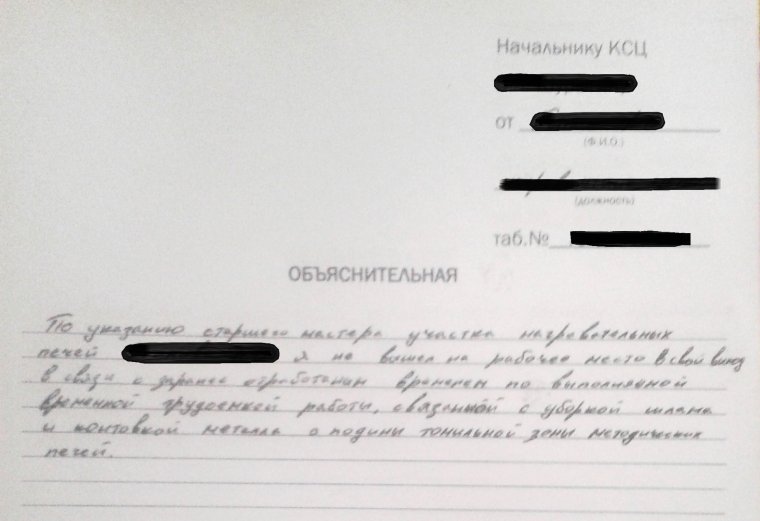 Начальнику КСЦ
от
(Ф.И.О.)
(должность)
таб.№
ОБЪЯСНИТЕЛЬНАЯ
По указанию старшего мастера участка нагревательных
печей я не вышел на рабочее место в свой выход
в связи с заранее отработаным временем по выполняемой
временной трудоемкой работы, связанной с уборкой шлама
и кантовкой металла с подины томильной зоны методических
печей.